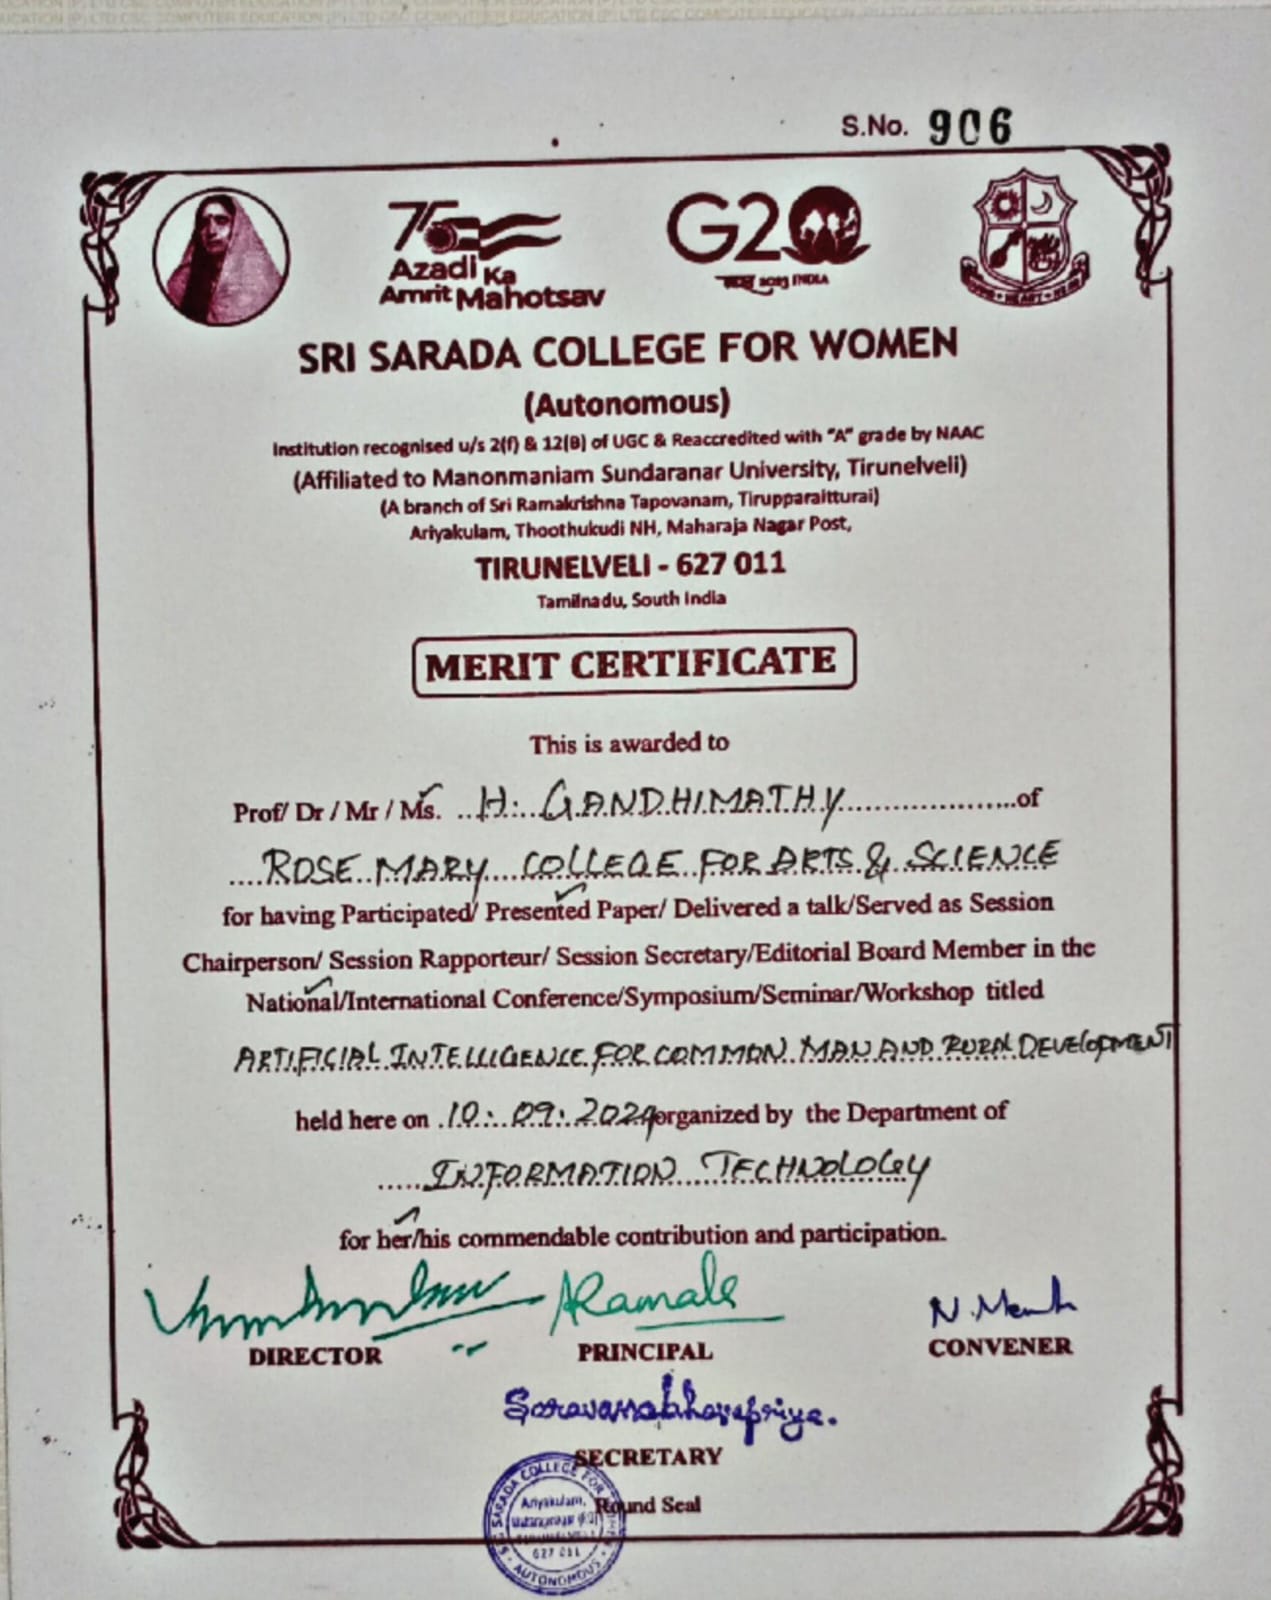 S.No. 906
75
Azadi Ka
Amrit Mahotsav
G20
2023 INDIA
HEART
SRI SARADA COLLEGE FOR WOMEN
(Autonomous)
Institution recognised u/s 2(f) & 12(B) of UGC & Reaccredited with "A" grade by NAAC
(Affiliated to Manonmaniam Sundaranar University, Tirunelveli)
(A branch of Sri Ramakrishna Tapovanam, Tirupparaitturai)
Ariyakulam, Thoothukudi NH, Maharaja Nagar Post,
TIRUNELVELI - 627 011
Tamilnadu, South India
MERIT CERTIFICATE
This is awarded to
Prof/ Dr / Mr / Ms. H. GANDHIMATHY of
ROSE MARY COLLEGE FOR ARTS & SCIENCE
for having Participated/ Presented Paper/ Delivered a talk/Served as Session
Chairperson/ Session Rapporteur/ Session Secretary/Editorial Board Member in the
National/International Conference/Symposium/Seminar/Workshop titled
ARTIFICIAL INTELLIGENCE FOR COMMON MAN AND RURAL DEVELOPMENT
held here on 10.09.2024 organized by the Department of
INFORMATION TECHNOLOGY
for her/his commendable contribution and participation.
DIRECTOR
PRINCIPAL
N.
CONVENER
Saravanabhavapriya.
SECRETARY
Round Seal
SARADA COLLEGE FOR
Ariyakulam,
627 011
AUTONOMOUS